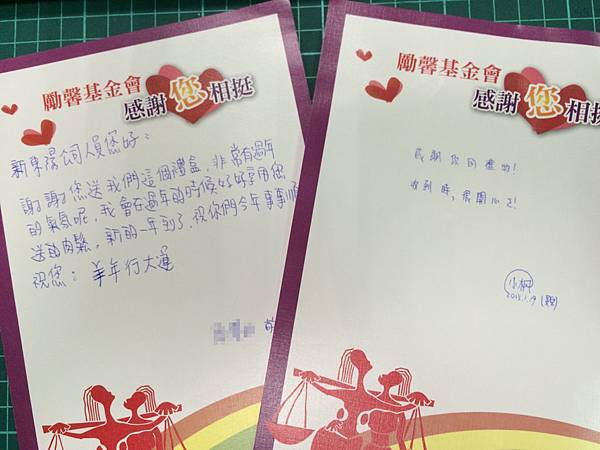 勵馨基金會
感謝您相挺
新東陽公司人員您好:
謝謝您送我們這個禮盒,非常有過年
的氣氛呢,我會在過年的時候好好享用您
送的肉鬆。新的一年到了,祝你們今年事事順
祝您:羊年行大運
勵馨基金會
感謝您相挺
感謝您的禮物!
收到時,很開心!
2015.1.9